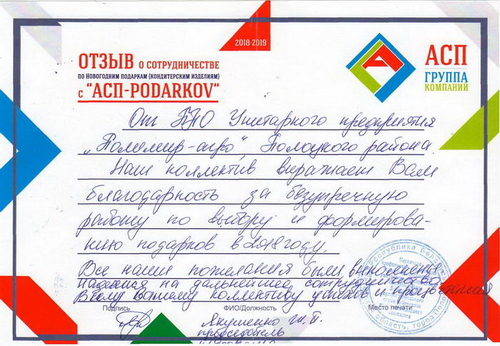 2018-2019
ОТЗЫВ О СОТРУДНИЧЕСТВЕ
ПО НОВОГОДНИМ ПОДАРКАМ (КОНДИТЕРСКИМ ИЗДЕЛИЯМ)
С "АСП-PODARKOV"
АСП
ГРУППА
КОМПАНИЙ
От ППО Унитарного предприятия
"Полимир-агро", Полоцкого района.
Наш коллектив выражает Вам
благодарность за безупречную
работу по выбору и формирова-
нию подарков в 2018 году.
Все наши пожелания были выполнены
Надеемся на дальнейшее сотрудничество
Всему Вашему коллективу успехов и процветания
Подпись
ФИО/Должность
Место печати
Якушенко
председатель